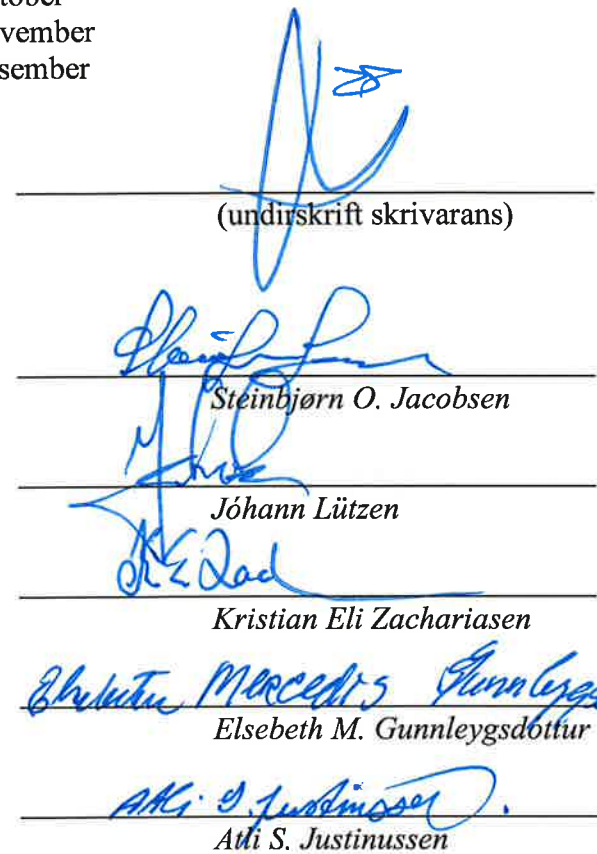 tober
vember
sember
(undirskrift skrivarans)
Steinbjørn O. Jacobsen
Jóhann Lützen
Kristian Eli Zachariasen
Elsebeth Mercedis Gunnleygs
Elsebeth M. Gunnleygsdóttur
Atli S. Justinussen
Atli S. Justinussen